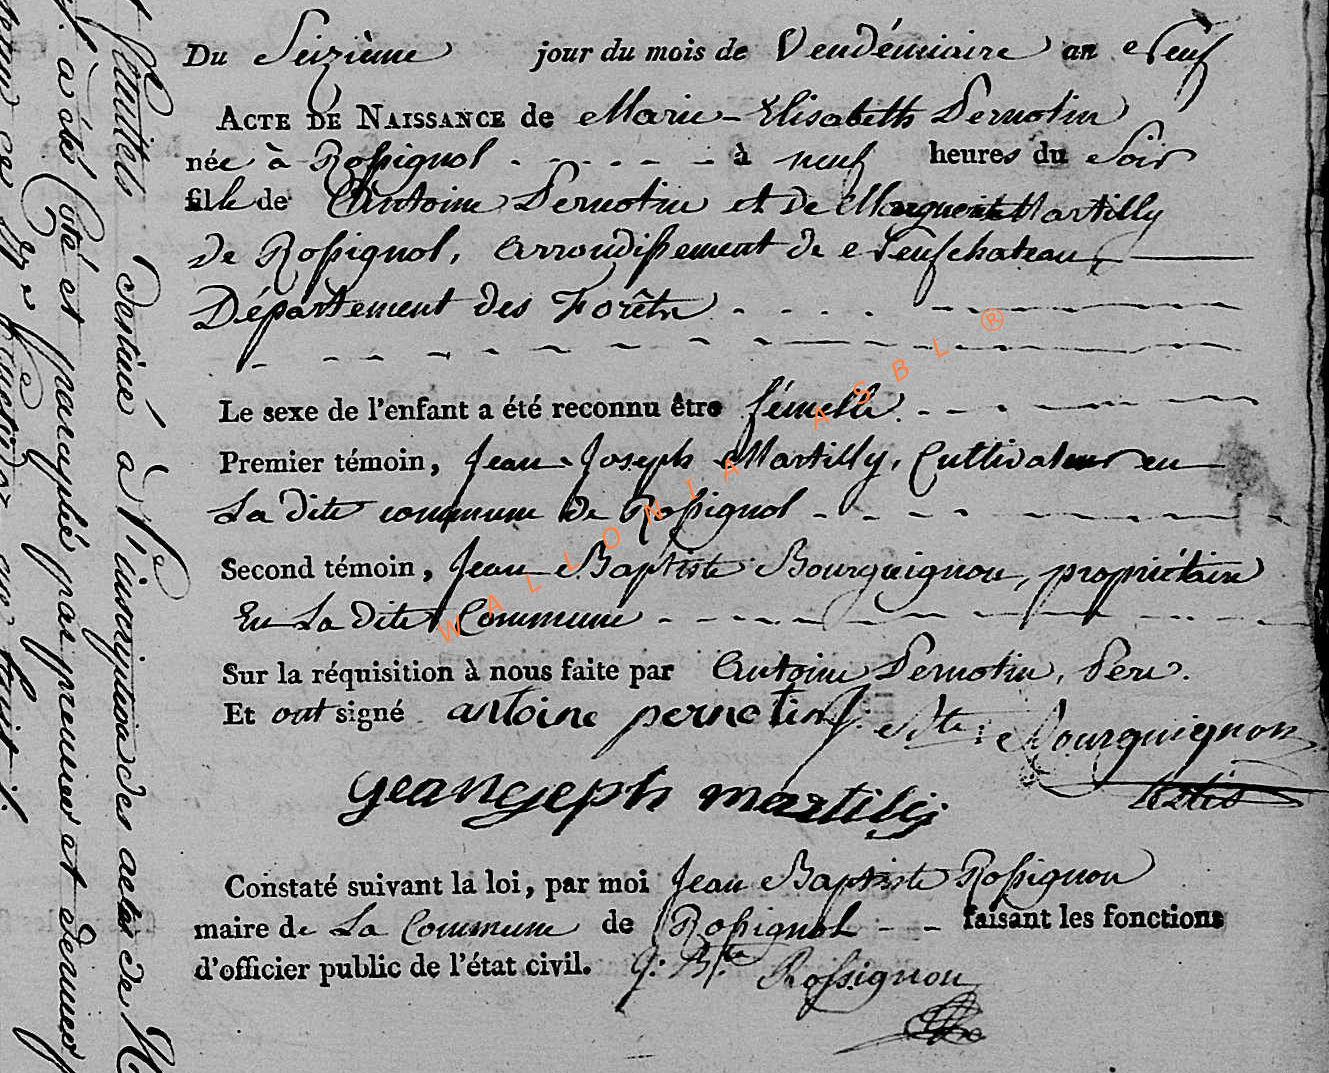 Du Seizième jour du mois de Vendémiaire an Neuf
ACTE DE NAISSANCE de Marie-Elisabeth Pernotin
née à Rossignol - - - - - - à neuf heures du Soir
fille de Antoine Pernotin et de Marguerite Martilly
de Rossignol, arrondissement de Neufchateau,
Département des Forêts
Le sexe de l'enfant a été reconnu être fémelle.
Premier témoin, Jean Joseph Martilly, Cultivateur en
La dite commune de Rossignol
Second témoin, Jean Baptiste Bourguignon, propriétaire
En La dite Commune
Sur la réquisition à nous faite par Antoine Pernotin, Pere.
Et ont signé antoine pernotin J. Bte: Bourguignon
geangeph martilij
Constaté suivant la loi, par moi Jean Baptiste Rossignon
maire de La Commune de Rossignol - - faisant les fonctions
d'officier public de l'état civil. J: Bte. Rossignon
feuillets destiné à l'inscription des actes de
a été Coté et paraphé par premier et dernier
WALLONIA ASBL ®